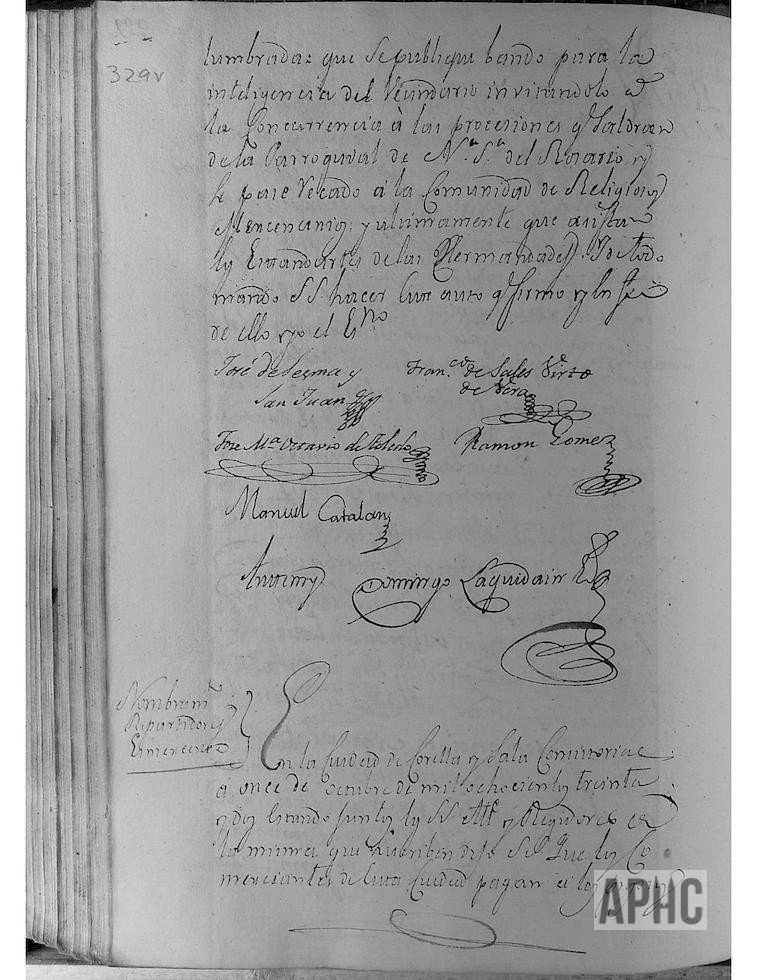 329v
lumbrada: que Se publiqu bando para la
inteligencia del Vecindario invitandolo a
la Concurrencia à las procesiones q.e Saldran
de la Parroquial de N.a S.a del Rosario, y
Se pase Recado a la Comunidad de Religiosos
Mercenarios; y ultimamente que asistan
los Estandartes de las Hermandades. Y de todo
mando S.S. hacer este auto q.e firmo y en fe
de ello yo el Es.no
José de Sesma y
San Juan
Fran.co de Sales Virto
de Vera
Jose M.a Octavio de Toledo
Ramon Gomez
Manuel Catalan
Antemi Domingo Laquidain Es.no
Nombram.to
Repartidores
Comerciantes
En la Ciudad de Corella y Sala Consistorial
á once de Octubre de mil ochocientos treinta
y dos Estando juntos los SS. Alc.e y Regidores de
la misma que suscriben dijo S.S. Que los Co
merciantes de esta Ciudad pagan a los
APHC